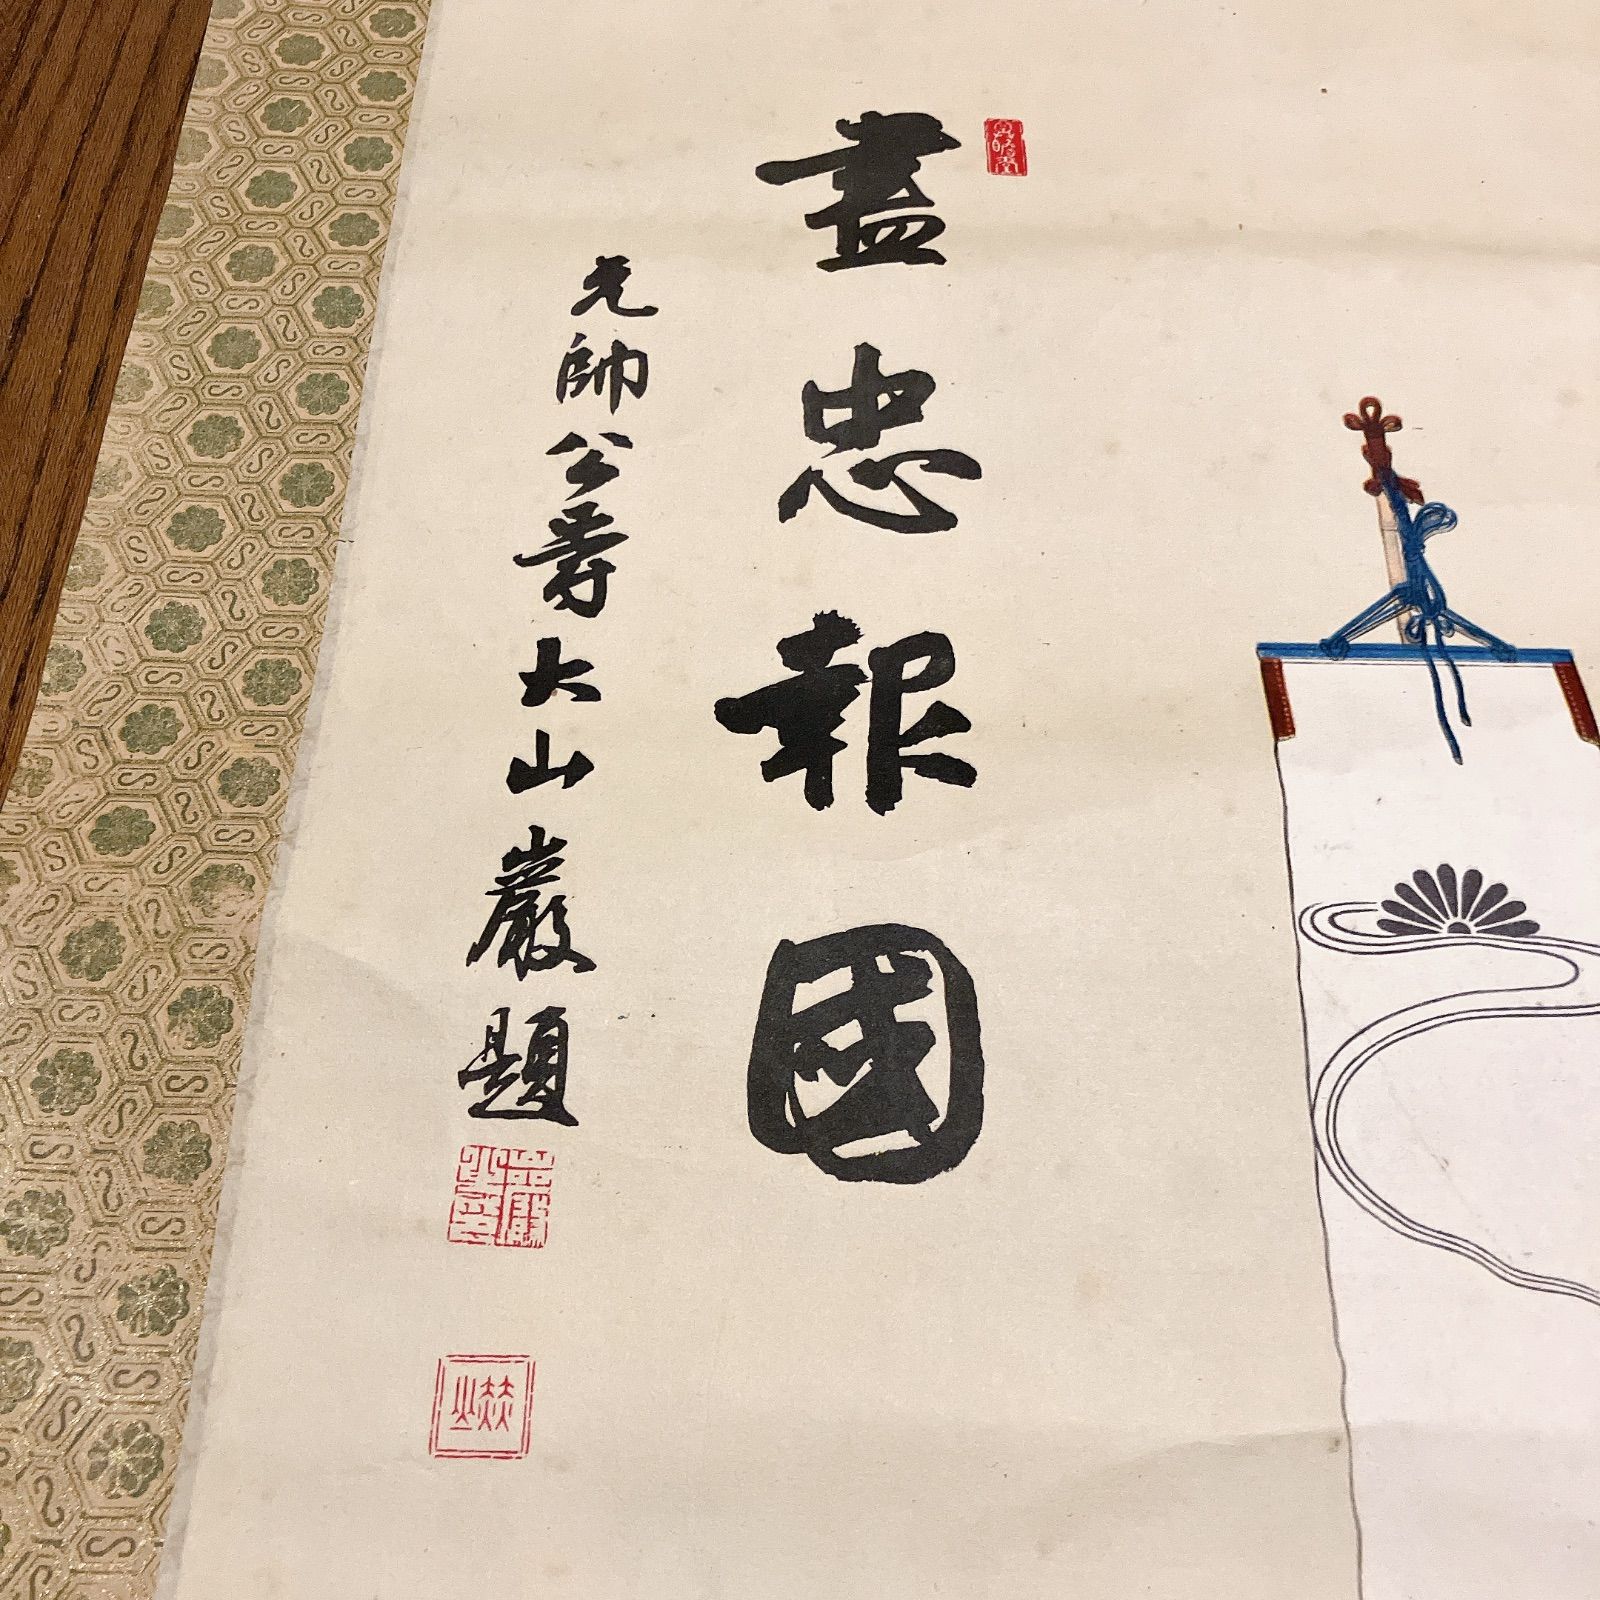 盡忠報國
元帥公爵大山巖題